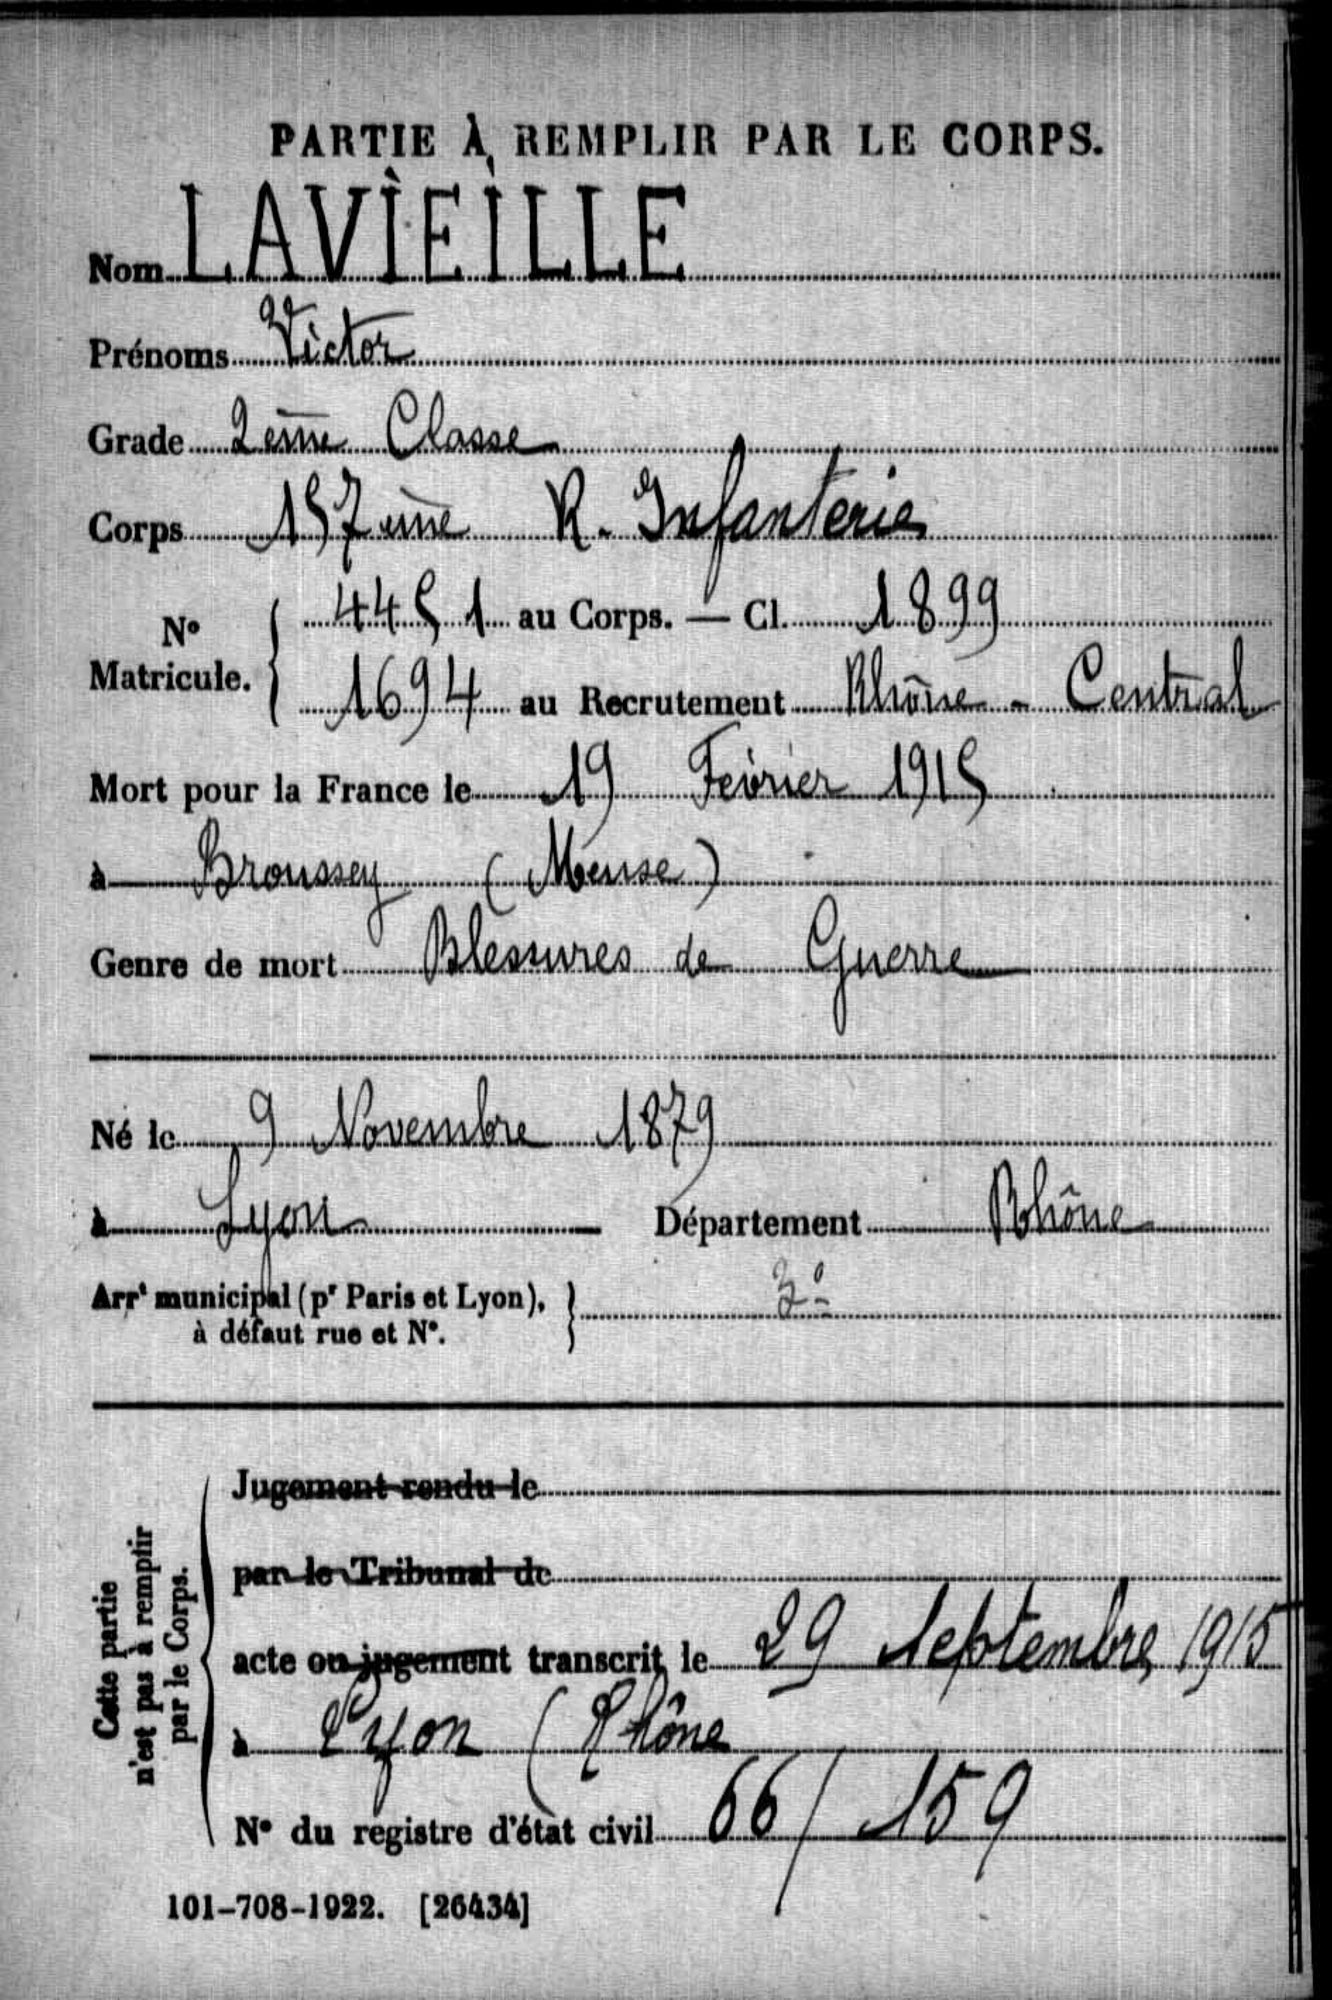 PARTIE À REMPLIR PAR LE CORPS.
Nom LAVIEILLE
Prénoms Victor
Grade 2ème Classe
Corps 157ème R. Infanterie
N° Matricule. { 4451 au Corps. — Cl. 1899
1694 au Recrutement Rhône - Central
Mort pour la France le 19 Février 1915
à Broussey (Meuse)
Genre de mort Blessures de Guerre
Né le 9 Novembre 1879
à Lyon Département Rhône
Arrt municipal (pr Paris et Lyon), } 3e
à défaut rue et N°.
Cette partie
n'est pas à remplir
par le Corps.
Jugement rendu le
par le Tribunal de
acte ou jugement transcrit le 29 Septembre 1915
à Lyon (Rhône
N° du registre d'état civil 66/159
101-708-1922. [26434]